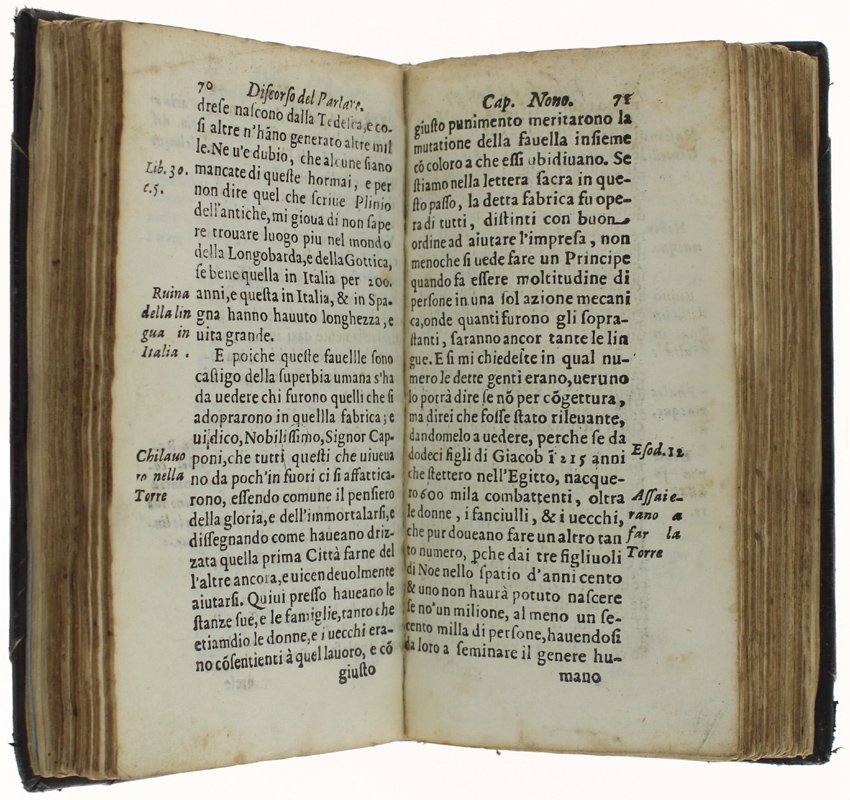 70 Discorso del Parlare.
drese nascono dalla Tedesca, e co-
si altre n'hãno generato altre mil
le. Ne u'e dubio, che alcune siano
Lib. 30. mancate di queste hormai, e per
c. 5. non dire quel che scriue Plinio
dell'antiche, mi gioua di non sape
re trouare luogo piu nel mondo
della Longobarda, e della Gottica,
se bene quella in Italia per 200.
Ruina anni, e questa in Italia, & in Spa-
della lin gna hanno hauuto longhezza, e
gua in uita grande.
Italia. E poiche queste fauellle sono
castigo della superbia umana s'ha
da uedere chi furono quelli che si
adoprarono in quellla fabrica; e
ui dico, Nobilissimo, Signor Cap-
Chi lauo poni, che tutti questi che uiueua
ro nella no da poch'in fuori ci si affattica-
Torre rono, essendo comune il pensiero
della gloria, e dell'immortalarsi, e
dissegnando come haueano driz-
zata quella prima Città farne del
l'altre ancora, e uicendeuolmente
aiutarsi. Quiui presso haueano le
stanze sue, e le famiglie, tanto che
etiamdio le donne, e i uecchi era-
no cõsentienti à quel lauoro, e cõ
giusto
Cap. Nono. 71
giusto punimento meritarono la
mutatione della fauella insieme
cõ coloro a che essi ubidiuano. Se
stiamo nella lettera sacra in que-
sto passo, la detta fabrica fu ope-
ra di tutti, distinti con buon
ordine ad aiutare l'impresa, non
meno che si uede fare un Principe
quando fa essere moltitudine di
persone in una sol azione mecani
ca, onde quanti furono gli sopra-
stanti, saranno ancor tante le lin
gue. E si mi chiedeste in qual nu-
mero le dette genti erano, ueruno
lo potrà dire se nõ per cõgettura,
ma direi che fosse stato rileuante,
dandomelo a uedere, perche se da
dodeci figli di Giacob ĩ 215 anni Esod. 12
che stettero nell'Egitto, nacque-
ro 600 mila combattenti, oltra Assai e-
le donne, i fanciulli, & i uecchi, rano a
che pur doueano fare un altro tan far la
to numero, ꝑche dai tre figliuoli Torre
di Noe nello spatio d'anni cento
& uno non haurà potuto nascere
se no'un milione, al meno un se-
cento milla di persone, hauendosi
da loro a seminare il genere hu-
mano